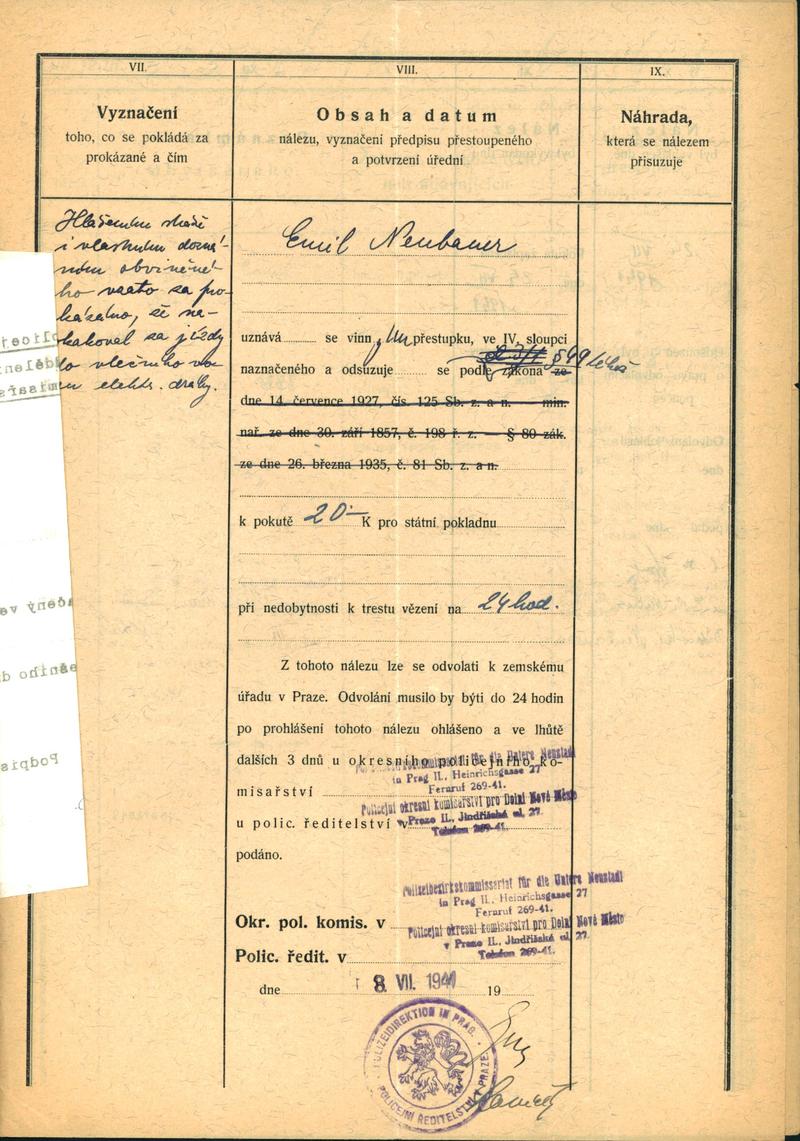 VII.
Vyznačení
toho, co se pokládá za
prokázané a čím
i vlastním dozná-
ním obviněné-
ho vzato za pro-
kázáno, že
za jízdy
do vlečného vo-
zu elektr. dráhy.
VIII.
Obsah a datum
nálezu, vyznačení předpisu přestoupeného
a potvrzení úřední
Emil Neubauer
uznává se vinn ým přestupku, ve IV. sloupci
naznačeného a odsuzuje se podle zákona ze
dne 14. července 1927, čís. 125 Sb. z. a n. — min.
nař. ze dne 30. září 1857, č. 198 ř. z. — § 80 zák.
ze dne 26. března 1935, č. 81 Sb. z. a n.
k pokutě 20·— K pro státní pokladnu
při nedobytnosti k trestu vězení na 24 hod.
Z tohoto nálezu lze se odvolati k zemskému
úřadu v Praze. Odvolání musilo by býti do 24 hodin
po prohlášení tohoto nálezu ohlášeno a ve lhůtě
dalších 3 dnů u okresního policejního ko-
misařství
u polic. ředitelství v
podáno.
Polizeibezirkskommissariat für die Untere Neustadt
in Prag II., Heinrichsgasse 27
Fernruf 269-41.
Policejní okresní komisařství pro Dolní Nové Město
v Praze II., Jindřišská ul. 27.
Telefon 269-41.
Okr. pol. komis. v
Polic. ředit. v
Polizeibezirkskommissariat für die Untere Neustadt
in Prag II., Heinrichsgasse 27
Fernruf 269-41.
Policejní okresní komisařství pro Dolní Nové Město
v Praze II., Jindřišská ul. 27.
Telefon 269-41.
dne 8. VII. 1941 19
POLIZEIDIREKTION IN PRAG.
POLICEJNÍ ŘEDITELSTVÍ V PRAZE.
IX.
Náhrada,
která se nálezem
přisuzuje